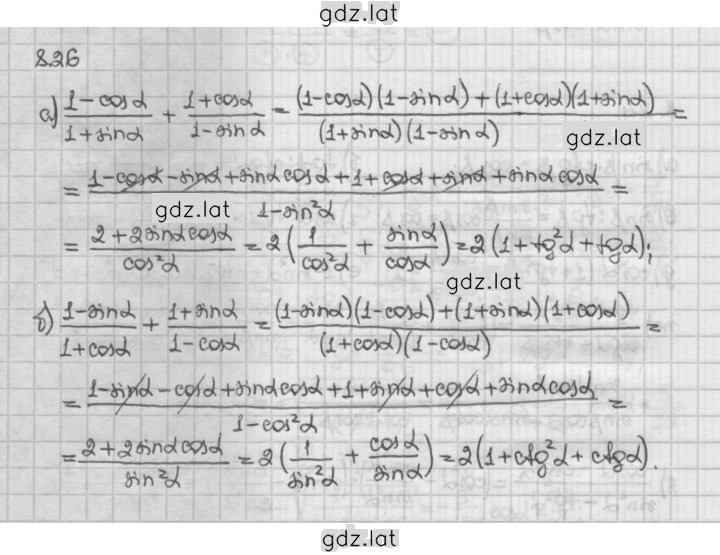 gdz.lat
8.26
а) (1-cosα)/(1+sinα) + (1+cosα)/(1-sinα) = ((1-cosα)(1-sinα)+(1+cosα)(1+sinα))/((1+sinα)(1-sinα)) =
gdz.lat
= (1-cosα-sinα+sinαcosα+1+cosα+sinα+sinαcosα)/(1-sin²α) =
gdz.lat
= (2+2sinαcosα)/(cos²α) = 2(1/(cos²α) + sinα/cosα) = 2(1+tg²α+tgα);
gdz.lat
б) (1-sinα)/(1+cosα) + (1+sinα)/(1-cosα) = ((1-sinα)(1-cosα)+(1+sinα)(1+cosα))/((1+cosα)(1-cosα)) =
= (1-sinα-cosα+sinαcosα+1+sinα+cosα+sinαcosα)/(1-cos²α) =
= (2+2sinαcosα)/(sin²α) = 2(1/(sin²α) + cosα/sinα) = 2(1+ctg²α+ctgα).
gdz.lat